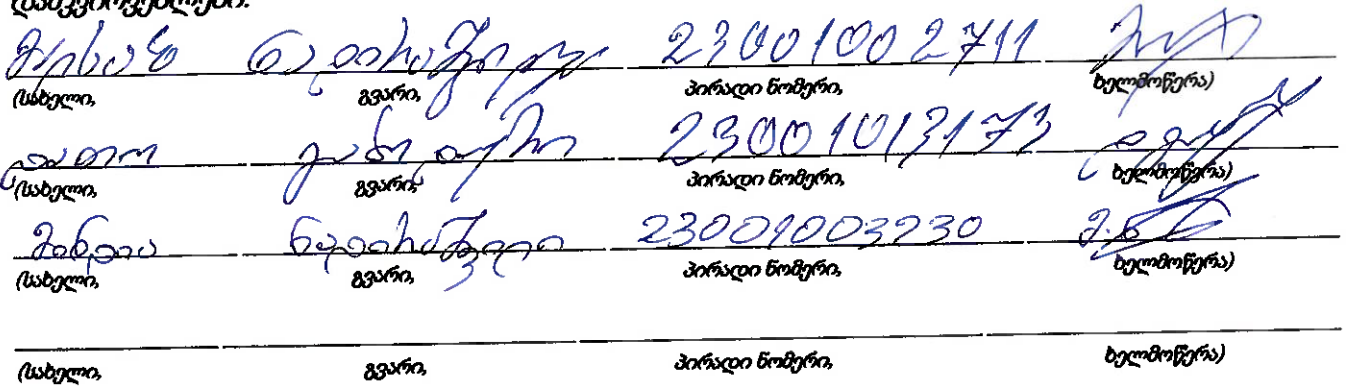 დამკვირვებლები:
ნადირაშვილი 23001002711
(სახელი, გვარი, პირადი ნომერი, ხელმოწერა)
დათო 23001013173
(სახელი, გვარი, პირადი ნომერი, ხელმოწერა)
მინდია ნადირაშვილი 23001003930 მ.ნ
(სახელი, გვარი, პირადი ნომერი, ხელმოწერა)
(სახელი, გვარი, პირადი ნომერი, ხელმოწერა)